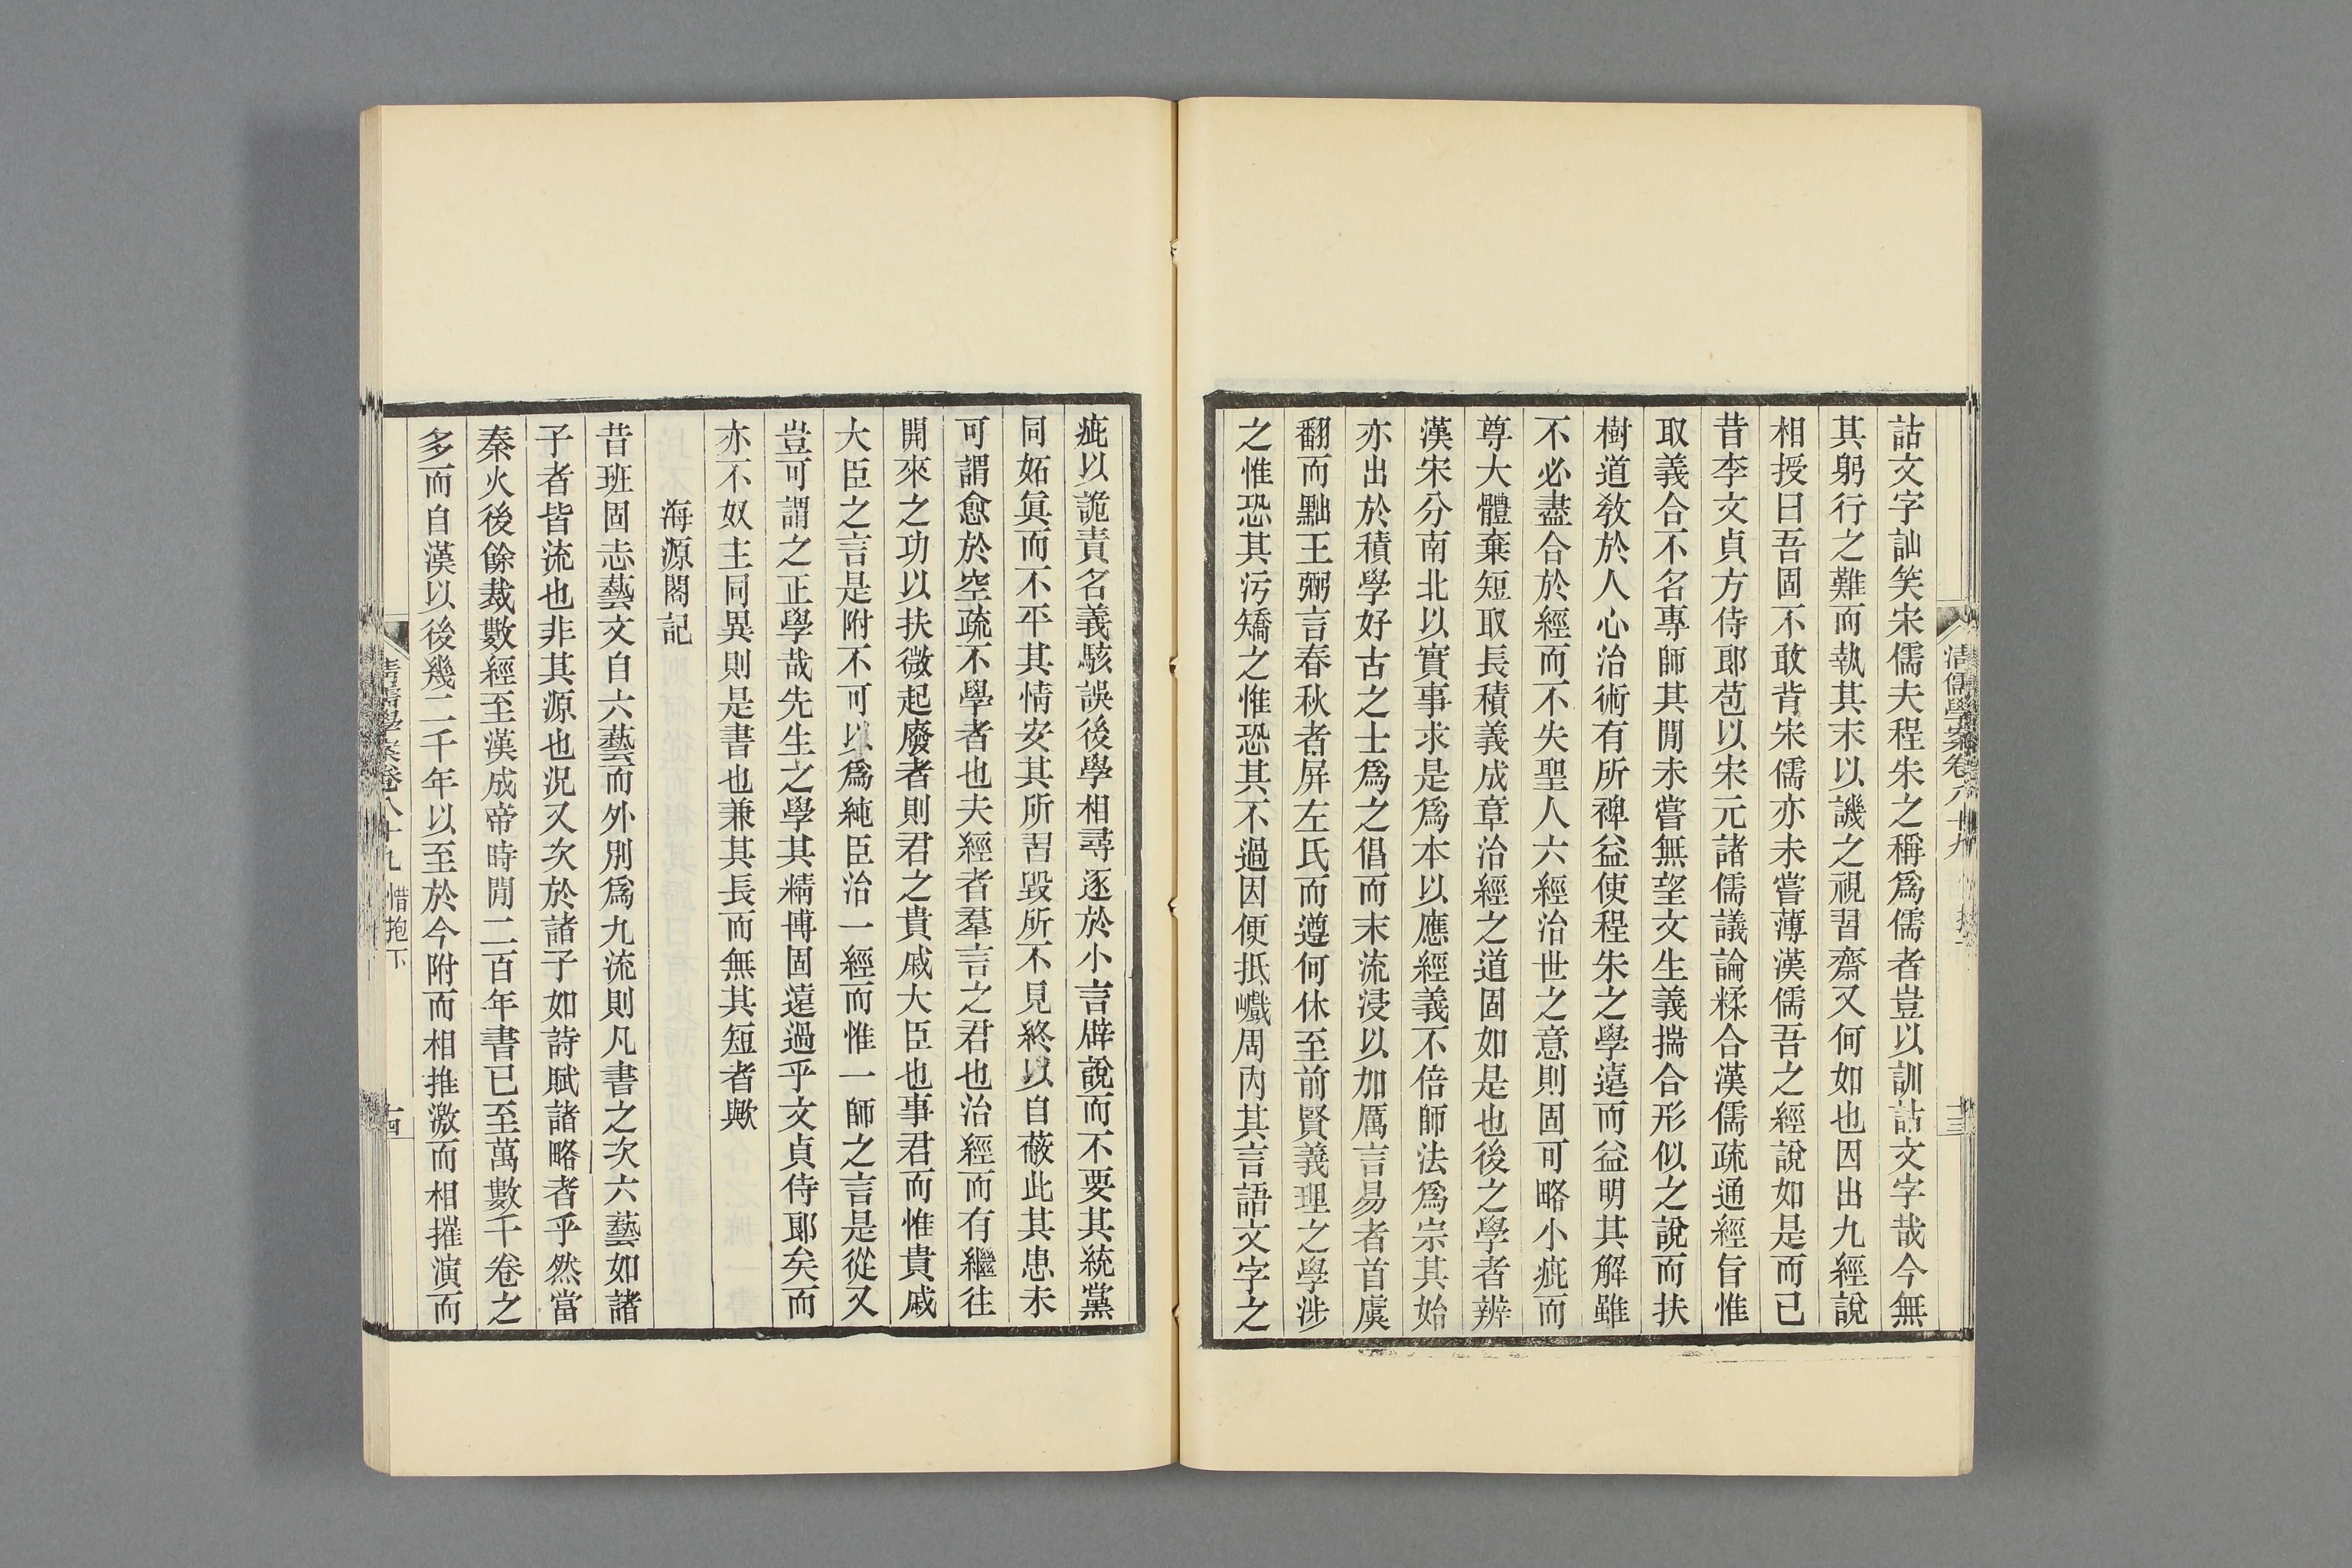 詁文字訕笑宋儒夫程朱之稱爲儒者豈以訓詁文字哉今無
其躬行之難而執其末以譏之視習齋又何如也因出九經說
相授曰吾固不敢背宋儒亦未嘗薄漢儒吾之經說如是而已
昔李文貞方侍郎苞以宋元諸儒議論糅合漢儒疏通經旨惟
取義合不名專師其閒未嘗無望文生義揣合形似之說而扶
樹道敎於人心治術有所裨益使程朱之學遠而益明其解雖
不必盡合於經而不失聖人六經治世之意則固可略小疵而
尊大體棄短取長積義成章治經之道固如是也後之學者辨
漢宋分南北以實事求是爲本以應經義不倍師法爲宗其始
亦出於積學好古之士爲之倡而末流浸以加厲言易者首虞
翻而黜王弼言春秋者屏左氏而遵何休至前賢義理之學涉
之惟恐其污矯之惟恐其不過因便抵巇周內其言語文字之
疵以詭責名義駭誤後學相尋逐於小言辟說而不要其統黨
同妬眞而不平其情安其所習毀所不見終以自蔽此其患未
可謂愈於空疏不學者也夫經者羣言之君也治經而有繼往
開來之功以扶微起廢者則君之貴戚大臣也事君而惟貴戚
大臣之言是附不可以爲純臣治一經而惟一師之言是從又
豈可謂之正學哉先生之學其精博固遠過乎文貞侍郎矣而
亦不奴主同異則是書也兼其長而無其短者歟
海源閣記
昔班固志藝文自六藝而外別爲九流則凡書之次六藝如諸
子者皆流也非其源也況又次於諸子如詩賦諸略者乎然當
秦火後餘裁數經至漢成帝時閒二百年書已至萬數千卷之
多而自漢以後幾二千年以至於今附而相推激而相摧演而
清儒學案卷八十九 惜抱下
十四